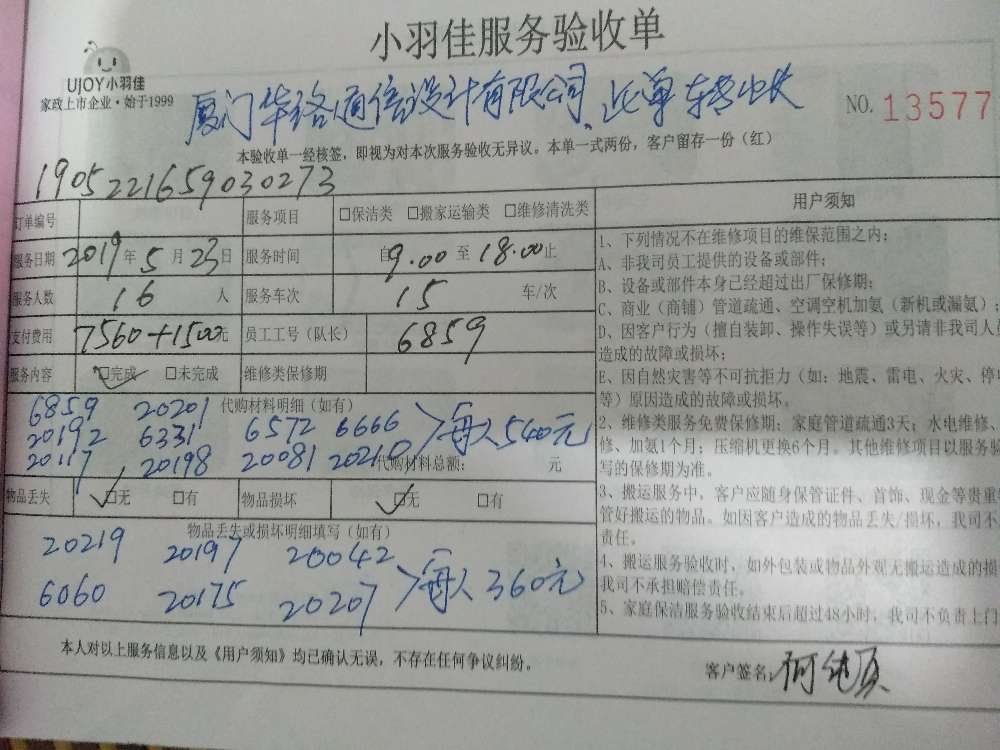 小羽佳服务验收单
UJOY小羽佳
家政上市企业·始于1999
厦门华珞通信设计有限公司、此单转少大
NO. 13577
本验收单一经核签，即视为对本次服务验收无异议。本单一式两份，客户留存一份（红）
1905221659030273
订单编号 服务项目 □保洁类 □搬家运输类 □维修清洗类
服务日期 2019年5月23日 服务时间 自9.00至18.00止
服务人数 16人 服务车次 15 车/次
支付费用 7560+1500元 员工工号（队长） 6859
服务内容 □完成 □未完成 维修类保修期
代购材料明细（如有）
6859 20201
20192 6331 6572 6666 每人540元
20117 20198 20081 20210
代购材料总额： 元
物品丢失 □无 □有 物品损坏 □无 □有
物品丢失或损坏明细填写（如有）
20219 20197 20042
6060 20175 20207 每人360元
本人对以上服务信息以及《用户须知》均已确认无误，不存在任何争议纠纷。
客户签名：
用户须知
1、下列情况不在维修项目的维保范围之内；
A、非我司员工提供的设备或部件；
B、设备或部件本身已经超过出厂保修期；
C、商业（商铺）管道疏通、空调空机加氨（新机或漏氨）；
D、因客户行为（擅自装卸、操作失误等）或另请非我司人员
造成的故障或损坏；
E、因自然灾害等不可抗拒力（如：地震、雷电、火灾、停电
等）原因造成的故障或损坏。
2、维修类服务免费保修期：家庭管道疏通3天；水电维修、
修、加氨1个月；压缩机更换6个月。其他维修项目以服务验
写的保修期为准。
3、搬运服务中，客户应随身保管证件、首饰、现金等贵重
管好搬运的物品。如因客户造成的物品丢失/损坏，我司不
责任。
4、搬运服务验收时，如外包装或物品外观无搬运造成的损
我司不承担赔偿责任。
5、家庭保洁服务验收结束后超过48小时，我司不负责上门